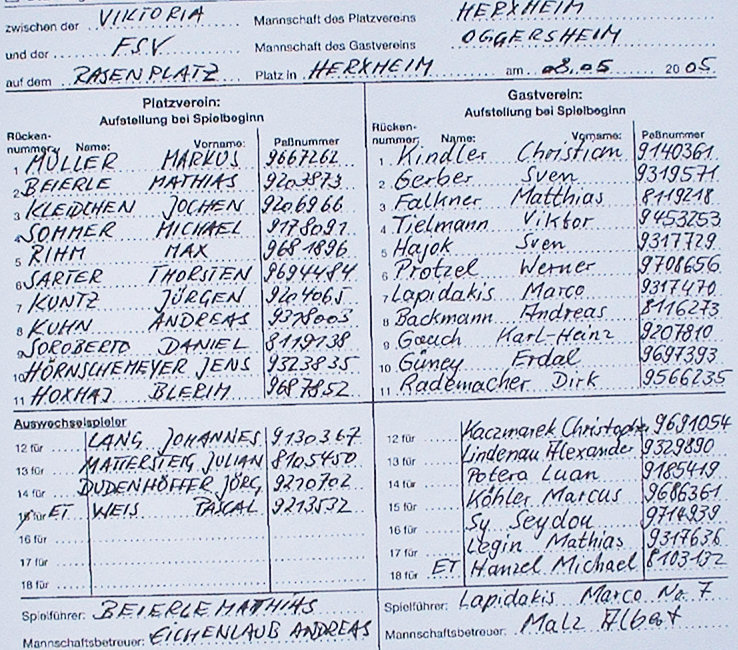 zwischen der VIKTORIA Mannschaft des Platzvereins HERXHEIM
und der FSV Mannschaft des Gastvereins OGGERSHEIM
auf dem RASENPLATZ Platz in HERXHEIM am 08.05 20 05
Platzverein:
Aufstellung bei Spielbeginn
Rücken-
nummer: Name: Vorname: Paßnummer
1 MÜLLER MARKUS 9667262
2 BEIERLE MATHIAS 9203873
3 KLEIDCHEN JOCHEN 9206966
4 SOMMER MICHAEL 9178091
5 RIHM MAX 9681896
6 SARTER THORSTEN 9694484
7 KUNTZ JÜRGEN 9204065
8 KUHN ANDREAS 9378003
9 SOROBERTO DANIEL 8119138
10 HÖRNSCHEMEYER JENS 9323835
11 HOXHAJ BLERIM 9687852
Auswechselspieler
12 für LANG JOHANNES 9130367
13 für MATTERSTEIG JULIAN 8105450
14 für DUDENHÖFFER JÖRG 9210702
15 für ET WEIS PASCAL 9213532
16 für
17 für
18 für
Spielführer: BEIERLE MATHIAS
Mannschaftsbetreuer: EICHENLAUB ANDREAS
Gastverein:
Aufstellung bei Spielbeginn
Rücken-
nummer: Name: Vorname: Paßnummer
1 Kindler Christian 9140361
2 Gerber Sven 9319571
3 Falkner Matthias 8119218
4 Tielmann Viktor 9453253
5 Hajok Sven 9317729
6 Protzel Werner 9708656
7 Lapidakis Marco 9317470
8 Backmann Andreas 8116273
9 Gauch Karl-Heinz 9207810
10 Güney Erdal 9697393
11 Rademacher Dirk 9566235
12 für Kaczmarek Christopher 9691054
13 für Lindenau Alexander 9329890
14 für Potera Luan 9185419
15 für Köhler Marcus 9686361
16 für Sy Seydou 9714939
17 für Legin Mathias 9317636
18 für ET Hanzel Michael 8103132
Spielführer: Lapidakis Marco No. 7
Mannschaftsbetreuer: Malz Albert